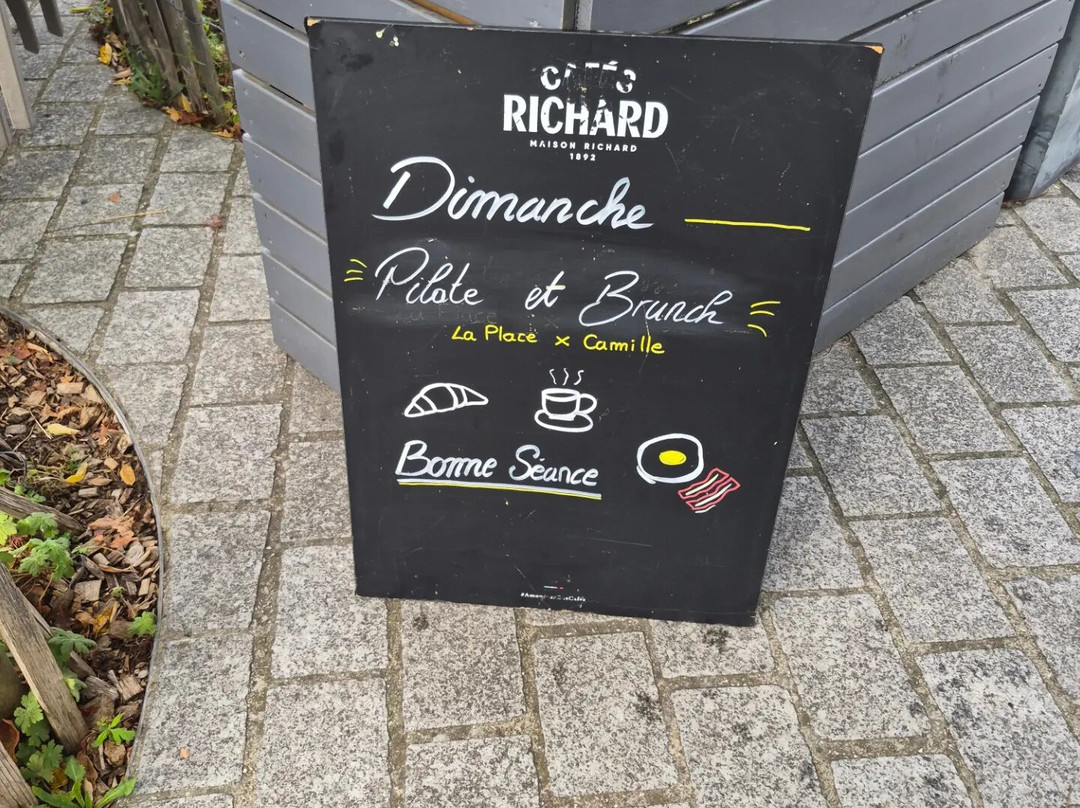 CAFÉS
RICHARD
MAISON RICHARD
1892
Dimanche
Pilate et Brunch
La Place x Camille
Bonne Séance